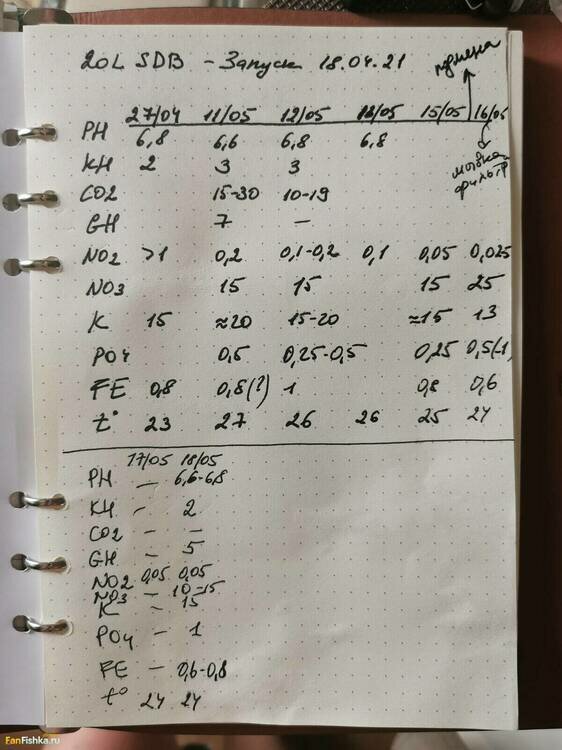 20L SDB - Запуск 18.04.21
27/04 11/05 12/05 13/05 15/05 16/05
PH 6,8 6,6 6,8 6,8
KH 2 3 3
CO2 15-30 10-19
GH 7 —
NO2 >1 0,2 0,1-0,2 0,1 0,05 0,025
NO3 15 15 15 25
K 15 ≈20 15-20 ≈15 13
PO4 0,5 0,25-0,5 0,25 0,5(-1)
FE 0,8 0,8(?) 1 0,8 0,6
t° 23 27 26 26 25 24
фильтр
17/05 18/05
PH — 6,6-6,8
KH - 2
CO2 — —
GH - 5
NO2 0,05 0,05
NO3 - 10-15
K - 15
PO4 - 1
FE — 0,6-0,8
t° 24 24
FanFishka.ru